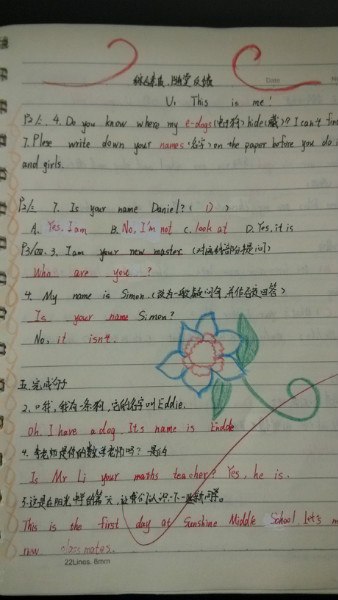 Date
No
U. This is me!
P2/=. 4. Do you know where my e-dogs (电子狗) hide (藏)? I can't fin
7. Plese write down your names (名字) on the paper before you do
and girls.
P2/= 7. Is your name Daniel? ( D )
A. Yes, I am B. No, I'm not C. look at D. Yes, it is
3. I am your new master. (对画线部分提问)
Who are you ?
4. My name is Simon. (改为一般疑问句,并作否定回答)
Is your name Simon?
No, it isn't.
五.完成句子
2. 我有一条狗,它的名字叫Eddie.
Oh. I have a dog. It's name is Eddie
4. 李老师是你的数学老师吗? 是的
Is Mr Li your maths teacher? Yes, he is.
This is the first day at Sunshine Middle School let's m
new classmates.
22Lines, 8mm